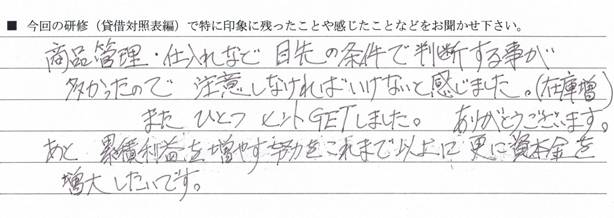 ■ 今回の研修（貸借対照表編）で特に印象に残ったことや感じたことなどをお聞かせ下さい。
商品管理・仕入れなど 目先の条件で判断する事が
多かったので 注意しなければいけないと感じました。(在庫増)
また ひとつ ヒントGETしました。 ありがとうございます。
あと 累積利益を増やす努力をこれまで以上に 更に資本金を
増大したいです。